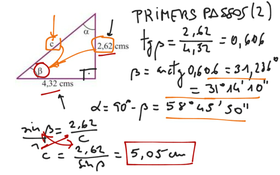 PRIMERS PASSOS (2)
α
c
2,62 cms
β
4,32 cms
tg β = 2,62 / 4,32 = 0,606
β = arctg 0,606 = 31,236°
= 31° 14' 10"
α = 90° - β = 58° 45' 50"
sin β / 1 = 2,62 / c
c = 2,62 / sin β = 5,05 cm